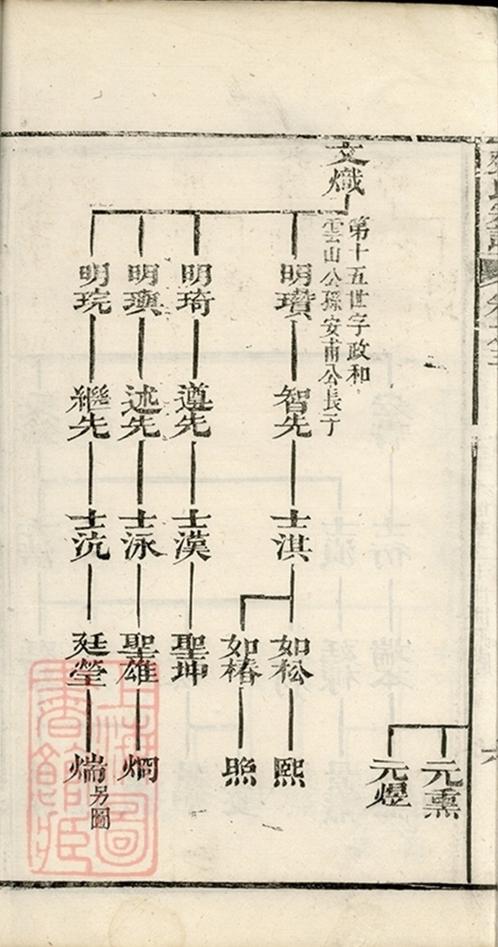 元熏
元煜
文熾
第十五世字政和
雲山公孫安甫公長子
明瓚
智先
士淇
如松
熙
如椿
照
明琦
遵先
士漠
聖坤
明璵
述先
士泳
聖雄
烱
明琓
繼先
士沆
廷瑩
煓
另圖
上海圖
書館藏